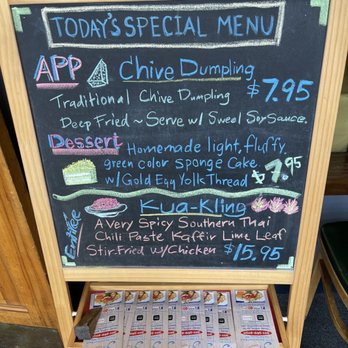 TODAY'S SPECIAL MENU
APP Chive Dumpling
Traditional Chive Dumpling $7.95
Deep Fried ~ Serve w/ Sweet Soy Sauce.
Dessert Homemade light, fluffy
green color Sponge Cake
w/ Gold Egg Yolk Thread $7.95
Entrée Kua-Kling
A Very Spicy Southern Thai
Chili Paste Kaffir Lime Leaf
Stir Fried w/ Chicken $15.95